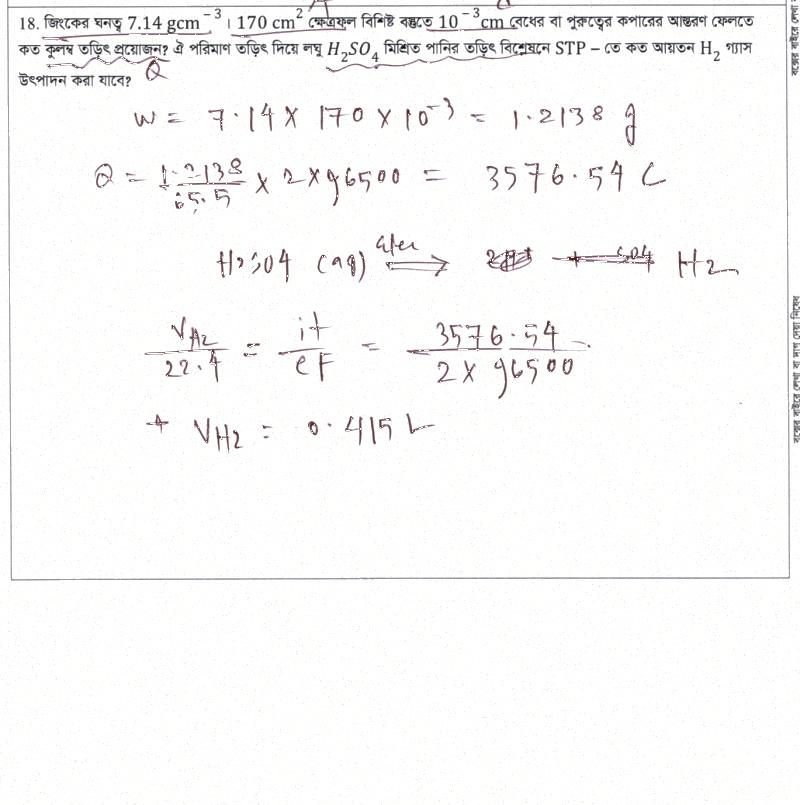 18. জিংকের ঘনত্ব 7.14 gcm⁻³। 170 cm² ক্ষেত্রফল বিশিষ্ট বস্তুতে 10⁻³cm বেধের বা পুরুত্বের কপারের আস্তরণ ফেলতে
কত কুলম্ব তড়িৎ প্রয়োজন? ঐ পরিমাণ তড়িৎ দিয়ে লঘু H₂SO₄ মিশ্রিত পানির তড়িৎ বিশ্লেষনে STP – তে কত আয়তন H₂ গ্যাস
উৎপাদন করা যাবে? Q
W = 7.14 × 170 × 10⁻³ = 1.2138 g
Q = 1.2138/65.5 × 2 × 96500 = 3576.54 C
H₂SO₄ (aq) ⇌ H₂
V_H2/22.4 = it/eF = 3576.54/2 × 96500
V_H2 = 0.415 L
বক্সের বাইরে লেখা বা দাগ দেয়া নিষেধ